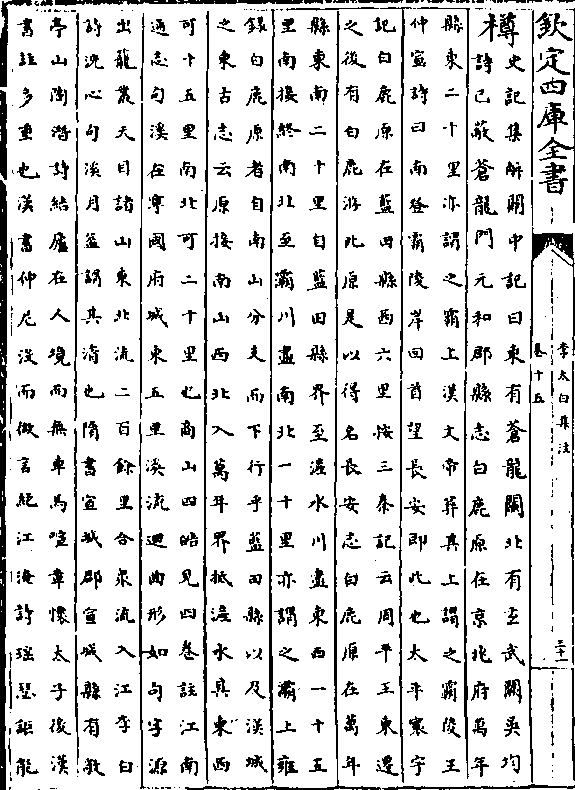 欽定四庫全書
李太白集注
卷十五
二十一
史記集解關中記曰東有蒼龍闕北有玄武闕吳均
樽詩已蔽蒼龍門元和郡縣志白鹿原在京兆府萬年
縣東二十里亦謂之霸上漢文帝葬其上謂之霸陵王
仲宣詩曰南登霸陵岸回首望長安即此也太平寰宇
記白鹿原在藍田縣西六里按三秦記云周平王東遷
之後有白鹿游此原是以得名長安志白鹿原在萬年
縣東南二十里自藍田縣界至滻水川盡東西一十五
里南接終南北至灞川盡南北一十里亦謂之灞上雍
錄白鹿原者自南山分支而下行乎藍田縣以及漢城
之東古志云原接南山西北入萬年界抵滻水其東西
可十五里南北可二十里也商山四皓見四卷註江南
通志句溪在寧國府城東五里溪流迴曲形如句字源
出籠叢天目諸山東北流二百餘里合衆流入江李白
詩洗心句溪月益謂其清也隋書宣城郡宣城縣有敬
亭山陶潛詩結廬在人境而無車馬喧章懷太子後漢
書註多重也漢書仲尼没而微言絕江淹詩瑶瑟詎能